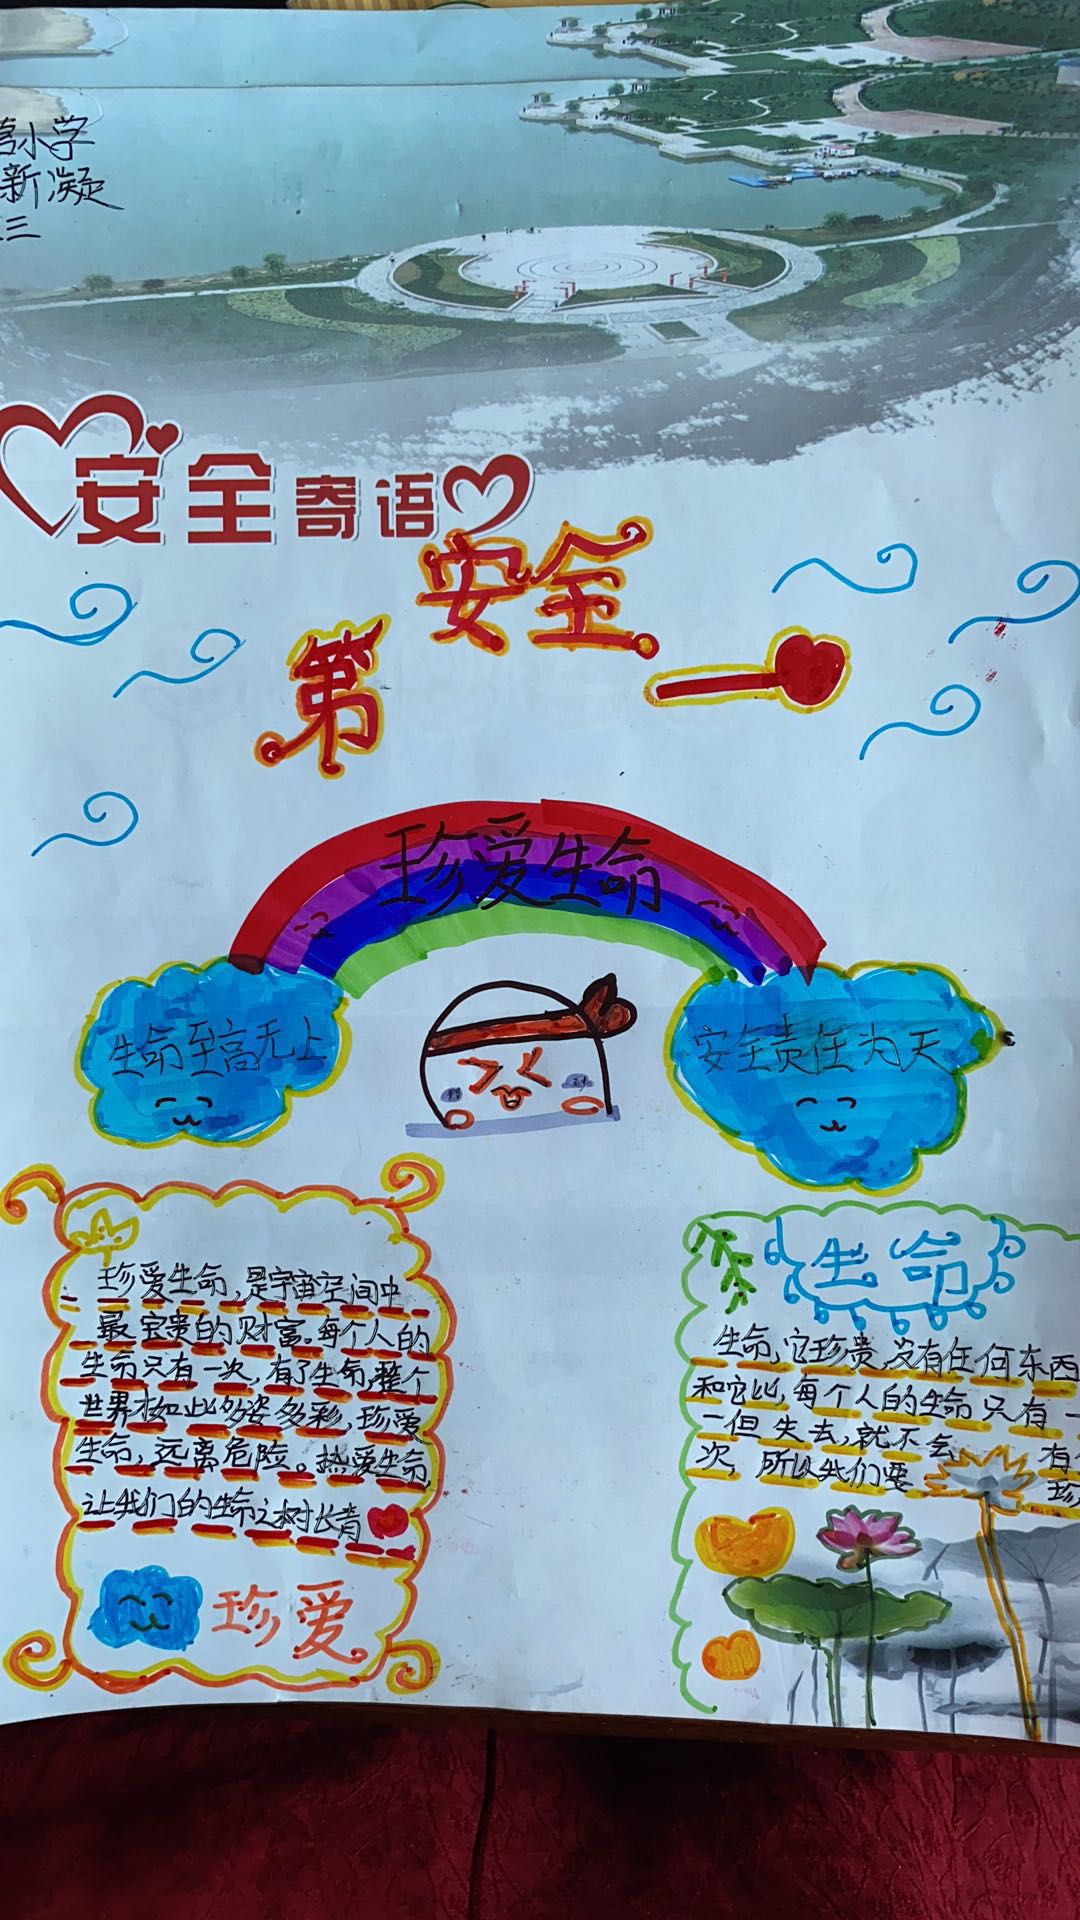 小学
新凝
三
安全寄语
安全
第一
珍爱生命
生命至高无上
安全责任为天
珍爱生命,是宇宙空间中
最宝贵的财富。每个人的
生命只有一次,有了生命,整个
世界才如此多姿多彩,珍爱
生命,远离危险。热爱生命,
让我们的生命之树长青
珍爱
生命
生命,它珍贵,没有任何东西
和它比,每个人的生命只有一
一但失去,就不会 有
次,所以我们要 珍